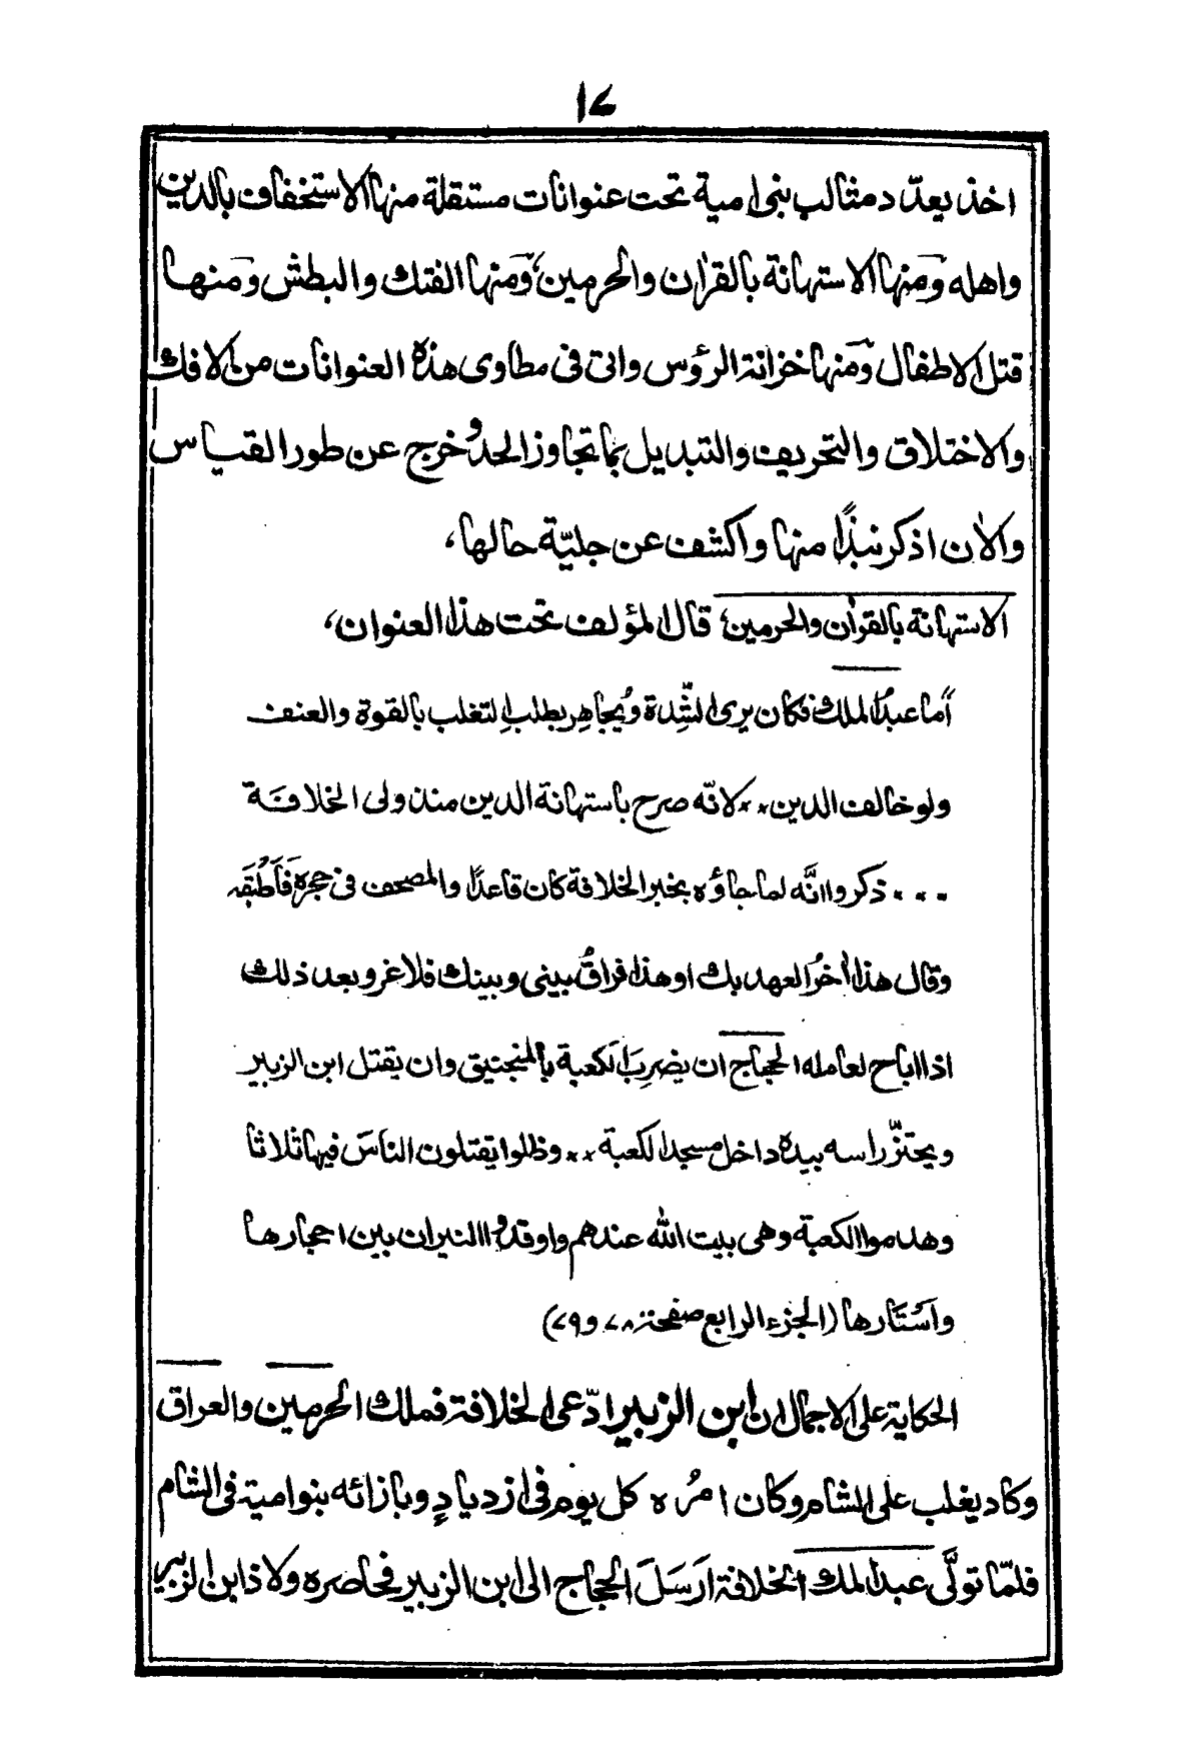 ١٧
اخذ يعدّد مثالب بنى امية تحت عنوانات مستقلة منها الاستخفاف بالدين
واهله ومنها الاستهانة بالقراٰن والحرمين، ومنها الفتك والبطش ومنها
قتل الاطفال ومنها خزانة الرؤس واتى فى مطاوى هذه العنوانات من الافك
والاختلاق والتحريف والتبديل بما تجاوز الحد وخرج عن طور القياس
والاٰن اذكر نبذًا منها واكشف عن جليّة حالها،
الاستهانة بالقراٰن والحرمين، قال المؤلف تحت هذا العنوان،
أما عبدُ الملك فكان يرى الشِّدة ويُجاهِر بطلب التغلب بالقوة والعنف
ولو خالف الدين ** لانّه صرح باستهانة الدين منذ ولى الخلافة
*** ذكروا انَّه لما جاؤه بخبر الخلافة كان قاعدًا والمصحف فى حجره فَاَطْبَقَه
وقال هذا اٰخرُ العهد بك او هذا فراقُ بينى وبينك فلا غرو بعد ذلك
اذا اباح لعامله الحجاج ان يضرِبَ الكعبة بالمنجنيق وان يقتل ابن الزبير
ويحتزّ راسه بيده داخل مسجد الكعبة ** وظلوا يقتلون الناسَ فيها ثلاثا
وهدموا الكعبة وهى بيت الله عندهم واوقدوا النيران بين احجارها
واَسْتَارها (الجزء الرابع صفحة ٧٨ و ٧٩)
الحكاية على الاجمال ان ابن الزبير ادّعى الخلافة فملك الحرمين والعراق
وكاد يغلب على الشام وكان امرُه كل يوم فى ازديادٍ وبازائه بنو امية فى الشام
فلمّا تولَّى عبد الملك الخلافة اَرسَلَ الحجاج الى ابن الزبير فحاصره ولاذ ابن الزبير